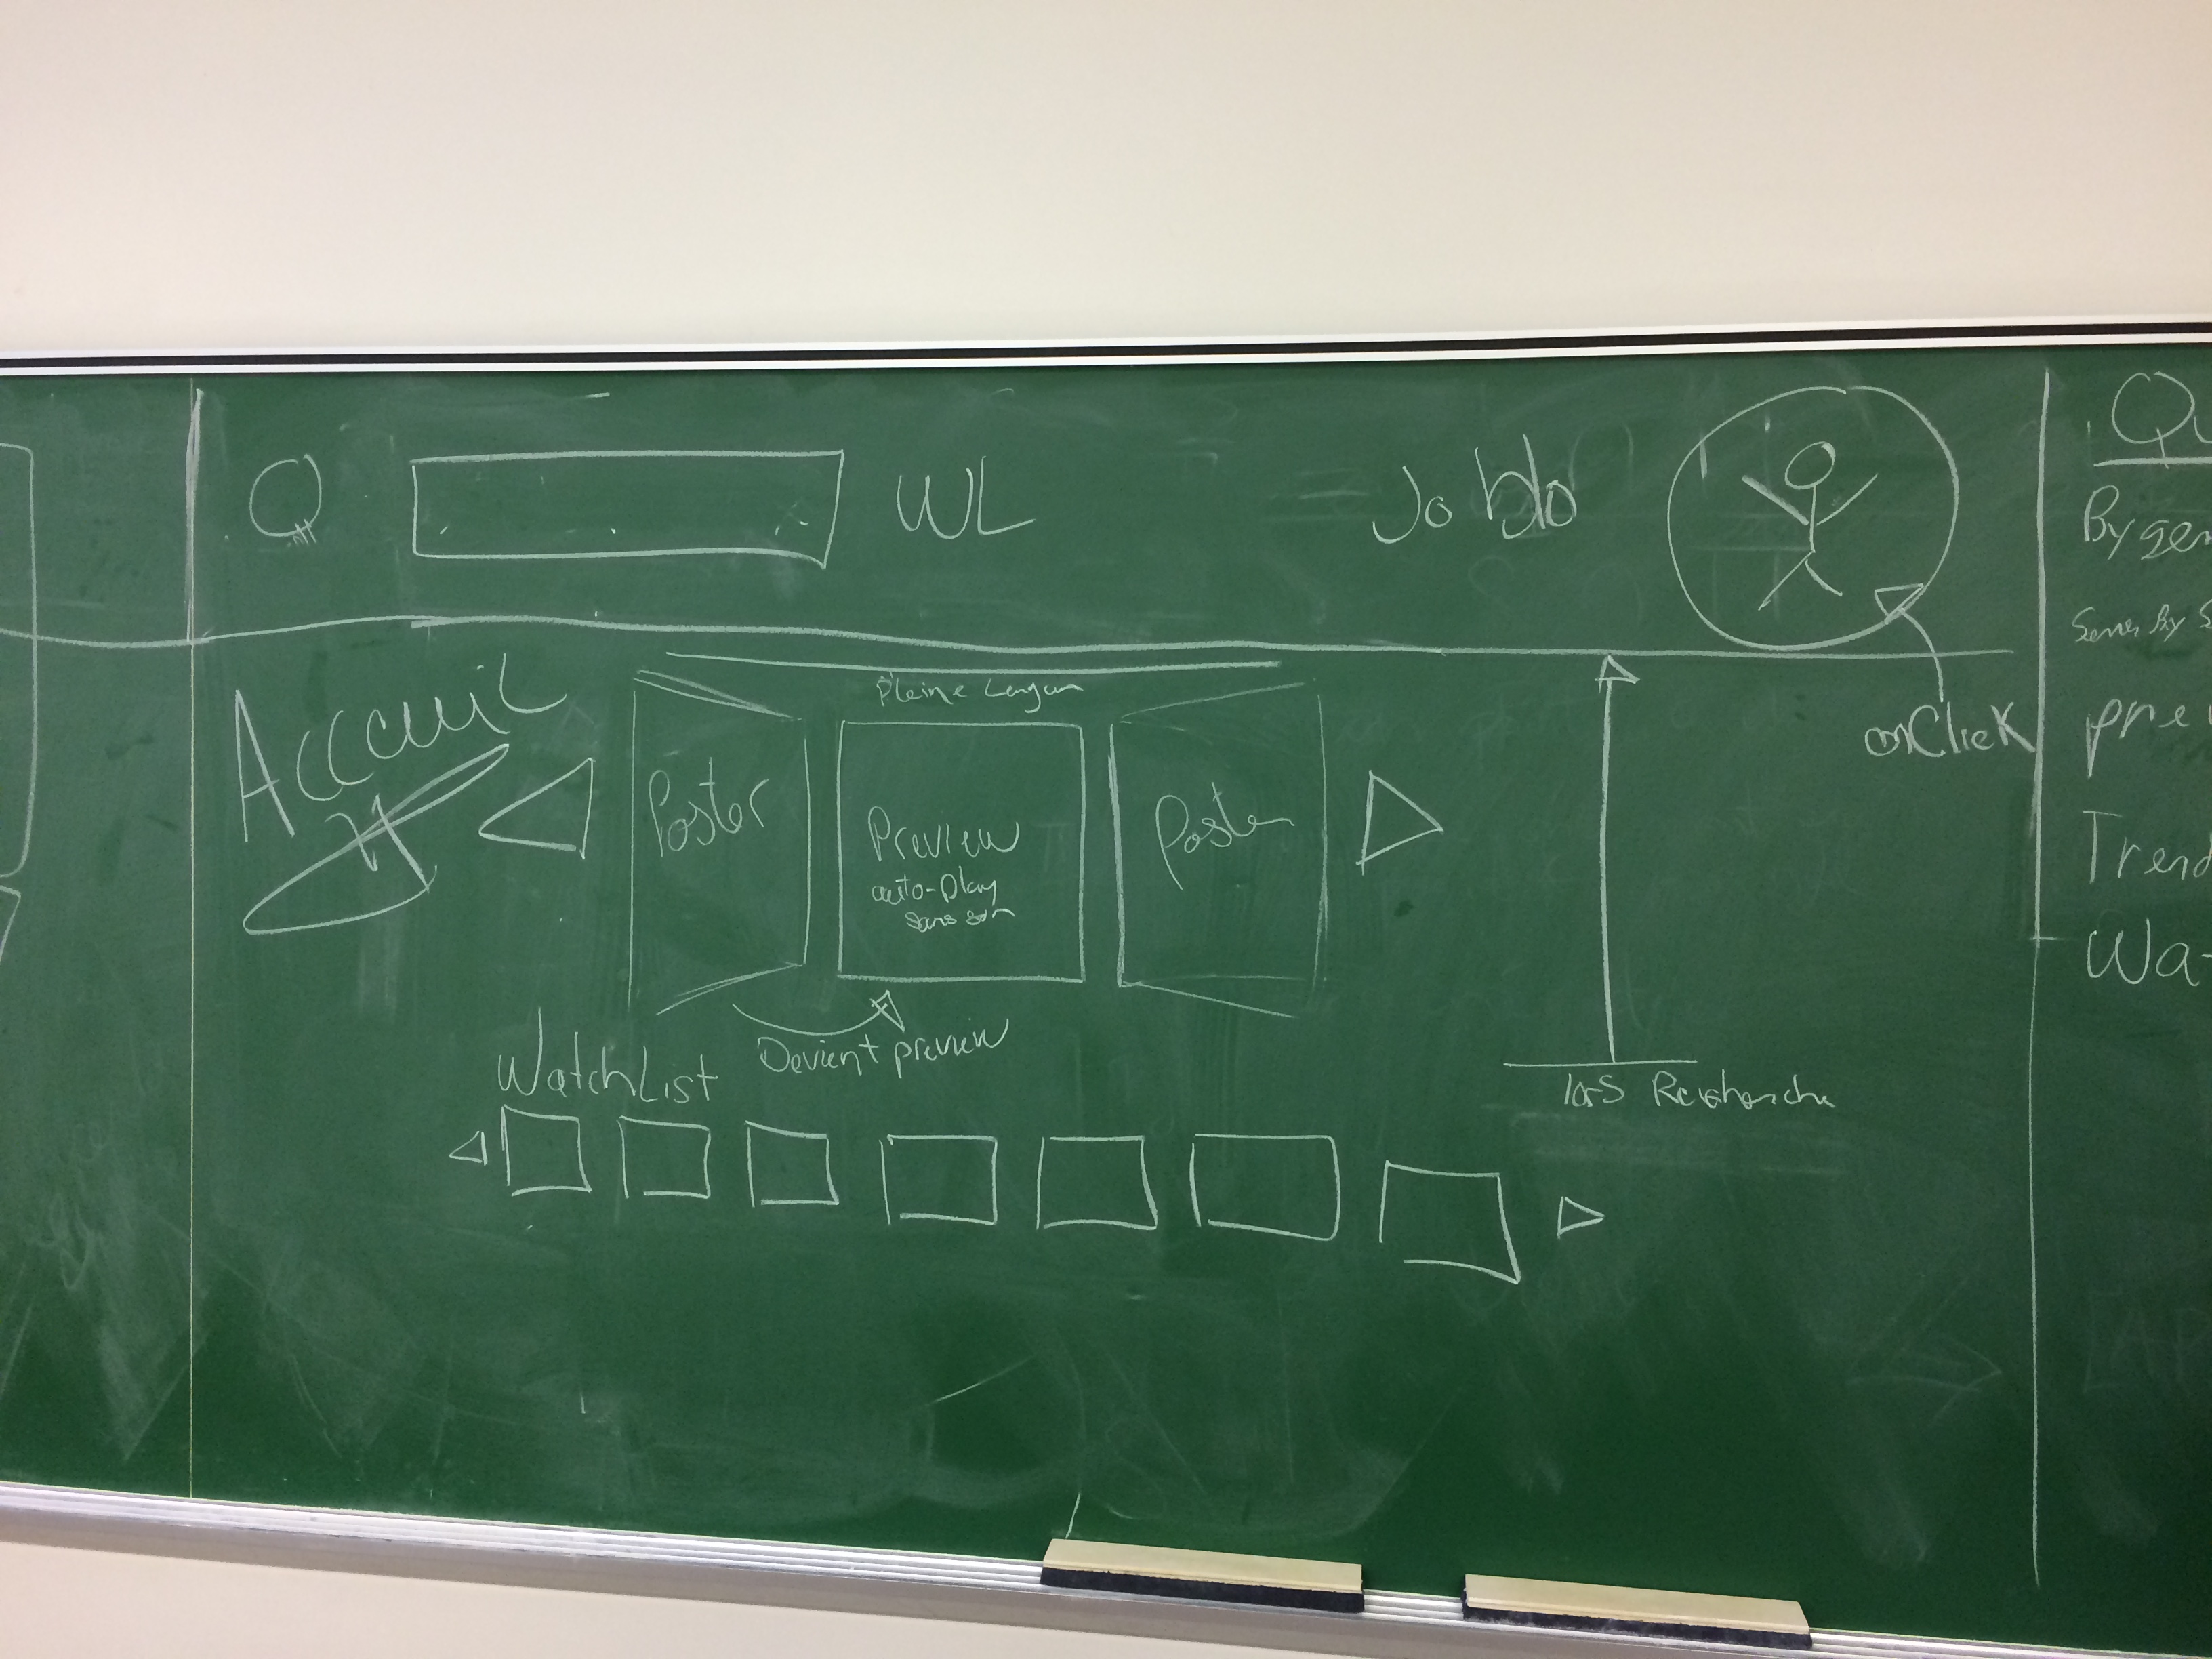 WL
Jo blo
Accueil
Pleine Largeur
Poster
Preview
auto-play
sans son
Poster
onClick
Devient preview
WatchList
lors Recherche
Qu
By gen
Series by S
pre
Trend
Wat